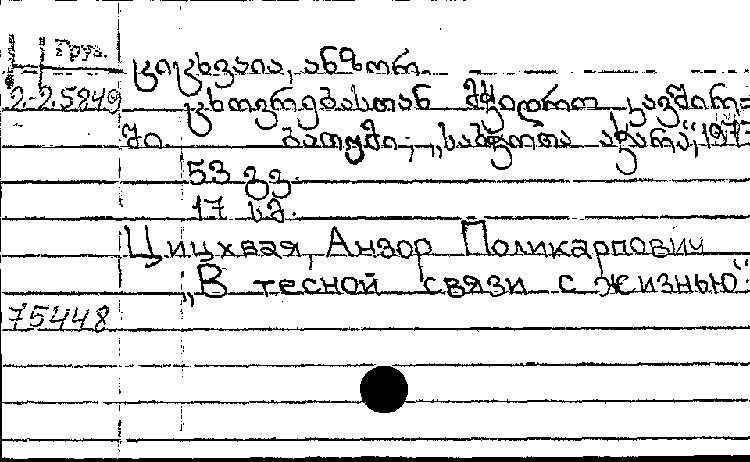 Груз.
ციცხვაია, ანზორ
2.-2.5849
ცხოვრებასთან მჭიდრო კავშირ=
ში. ბათუმი, „საბჭოთა აჭარა",
53 გვ.
17 სმ.
Цицхвая, Анзор Поликарпович
„В тесной связи с жизнью“.
75448